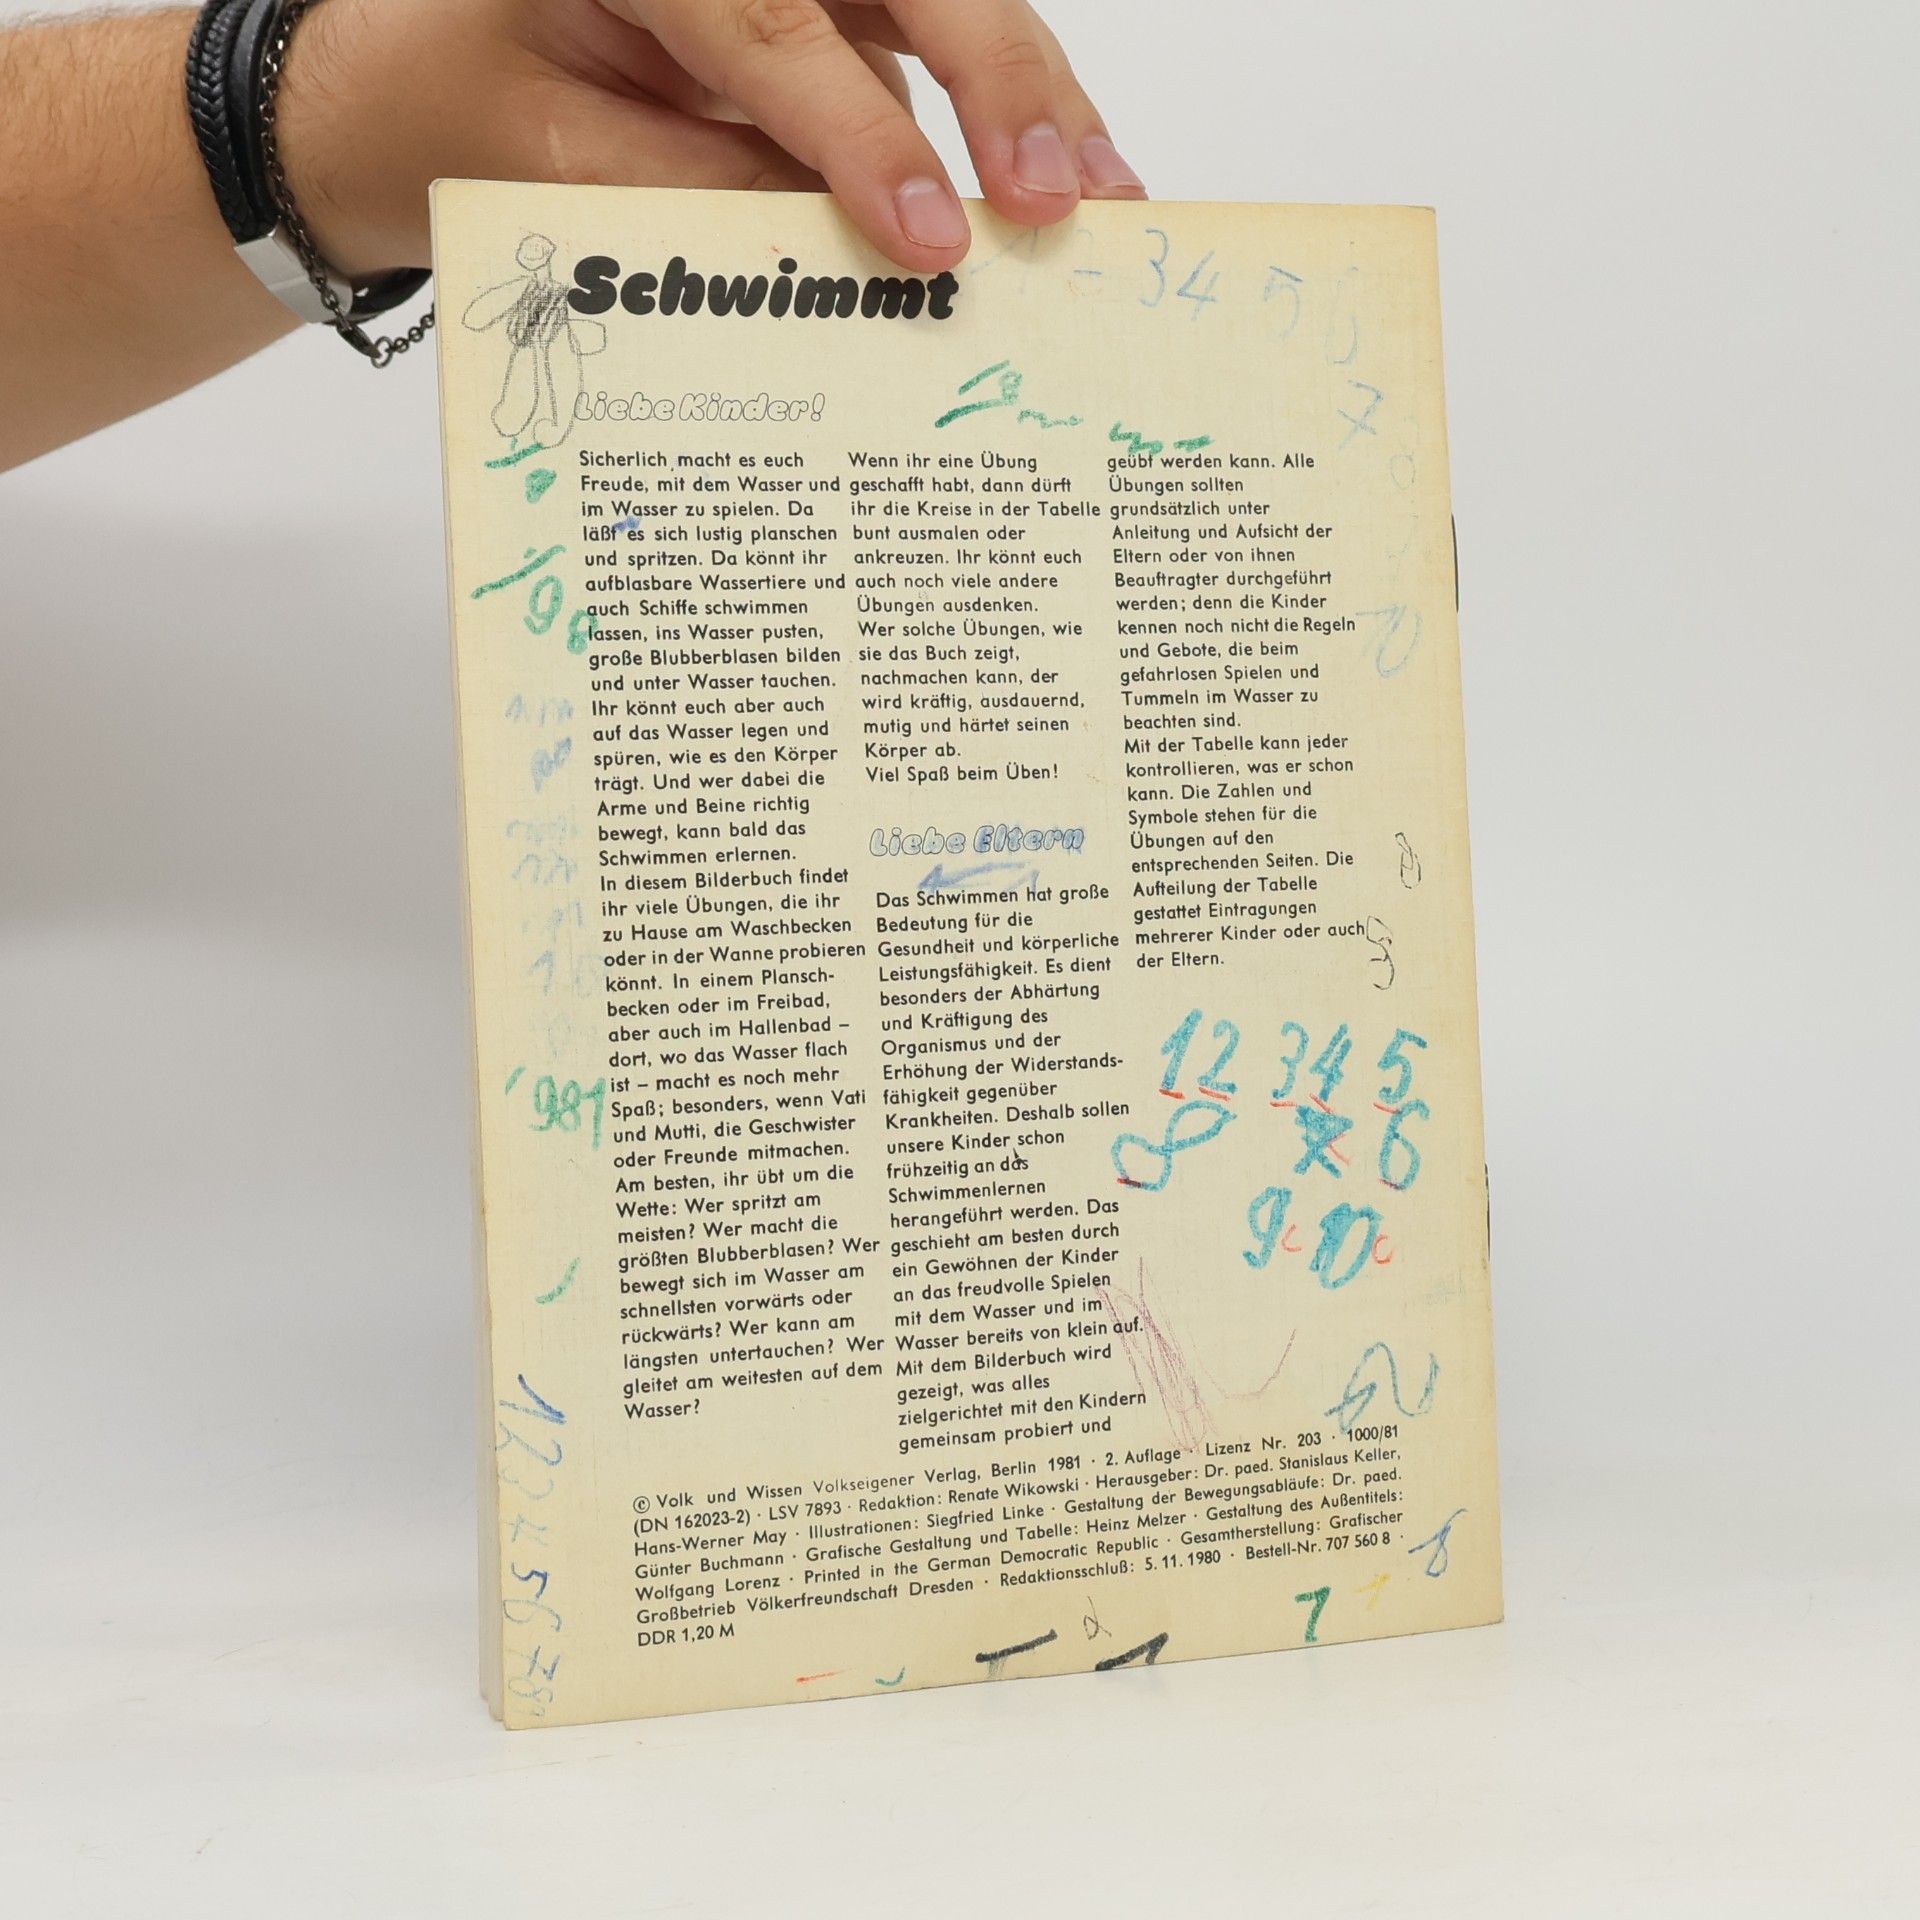 Schwimmt
Liebe Kinder!
Sicherlich macht es euch
Freude, mit dem Wasser und
im Wasser zu spielen. Da
läßt es sich lustig planschen
und spritzen. Da könnt ihr
aufblasbare Wassertiere und
auch Schiffe schwimmen
lassen, ins Wasser pusten,
große Blubberblasen bilden
und unter Wasser tauchen.
Ihr könnt euch aber auch
auf das Wasser legen und
spüren, wie es den Körper
trägt. Und wer dabei die
Arme und Beine richtig
bewegt, kann bald das
Schwimmen erlernen.
In diesem Bilderbuch findet
ihr viele Übungen, die ihr
zu Hause am Waschbecken
oder in der Wanne probieren
könnt. In einem Plansch-
becken oder im Freibad,
aber auch im Hallenbad –
dort, wo das Wasser flach
ist – macht es noch mehr
Spaß; besonders, wenn Vati
und Mutti, die Geschwister
oder Freunde mitmachen.
Am besten, ihr übt um die
Wette: Wer spritzt am
meisten? Wer macht die
größten Blubberblasen? Wer
bewegt sich im Wasser am
schnellsten vorwärts oder
rückwärts? Wer kann am
längsten untertauchen? Wer
gleitet am weitesten auf dem
Wasser?
Wenn ihr eine Übung
geschafft habt, dann dürft
ihr die Kreise in der Tabelle
bunt ausmalen oder
ankreuzen. Ihr könnt euch
auch noch viele andere
Übungen ausdenken.
Wer solche Übungen, wie
sie das Buch zeigt,
nachmachen kann, der
wird kräftig, ausdauernd,
mutig und härtet seinen
Körper ab.
Viel Spaß beim Üben!
Liebe Eltern
Das Schwimmen hat große
Bedeutung für die
Gesundheit und körperliche
Leistungsfähigkeit. Es dient
besonders der Abhärtung
und Kräftigung des
Organismus und der
Erhöhung der Widerstands-
fähigkeit gegenüber
Krankheiten. Deshalb sollen
unsere Kinder schon
frühzeitig an das
Schwimmenlernen
herangeführt werden. Das
geschieht am besten durch
ein Gewöhnen der Kinder
an das freudvolle Spielen
mit dem Wasser und im
Wasser bereits von klein auf.
Mit dem Bilderbuch wird
gezeigt, was alles
zielgerichtet mit den Kindern
gemeinsam probiert und
geübt werden kann. Alle
Übungen sollten
grundsätzlich unter
Anleitung und Aufsicht der
Eltern oder von ihnen
Beauftragter durchgeführt
werden; denn die Kinder
kennen noch nicht die Regeln
und Gebote, die beim
gefahrlosen Spielen und
Tummeln im Wasser zu
beachten sind.
Mit der Tabelle kann jeder
kontrollieren, was er schon
kann. Die Zahlen und
Symbole stehen für die
Übungen auf den
entsprechenden Seiten. Die
Aufteilung der Tabelle
gestattet Eintragungen
mehrerer Kinder oder auch
der Eltern.
1 2 3 4 5
8 7 6
9 10
© Volk und Wissen Volkseigener Verlag, Berlin 1981 · 2. Auflage · Lizenz Nr. 203 · 1000/81
(DN 162023-2) · LSV 7893 · Redaktion: Renate Wikowski · Herausgeber: Dr. paed. Stanislaus Keller,
Hans-Werner May · Illustrationen: Siegfried Linke · Gestaltung der Bewegungsabläufe: Dr. paed.
Günter Buchmann · Grafische Gestaltung und Tabelle: Heinz Melzer · Gestaltung des Außentitels:
Wolfgang Lorenz · Printed in the German Democratic Republic · Gesamtherstellung: Grafischer
Großbetrieb Völkerfreundschaft Dresden · Redaktionsschluß: 5. 11. 1980 · Bestell-Nr. 707 560 8 ·
DDR 1,20 M